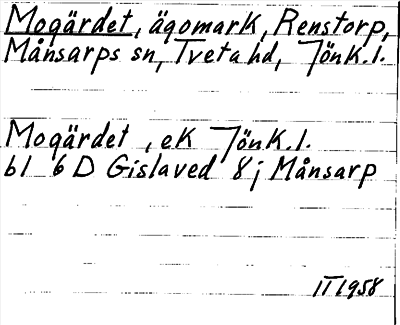 Mogärdet, ägomark, Renstorp,
Månsarps sn, Tveta hd, Jönk. l.
Mogärdet, ek Jönk. l.
bl 6 D Gislaved 8j Månsarp
II 1958